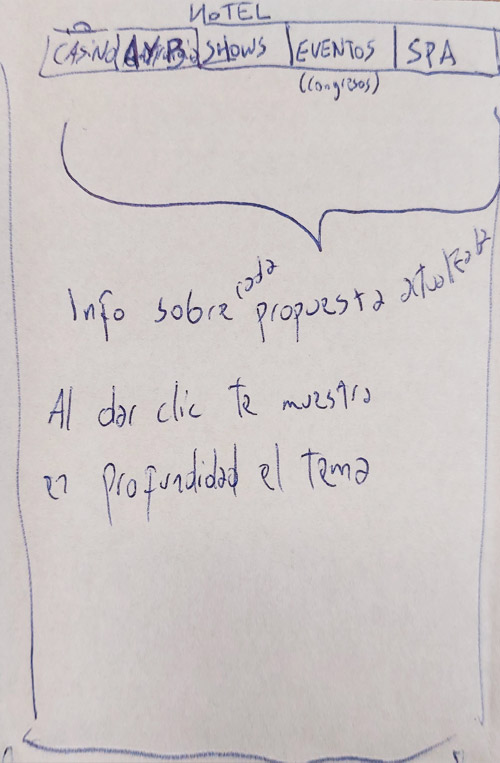 HOTEL
CASINO AYB SHOWS EVENTOS SPA
(Congresos)
Info sobre cada propuesta actualizada
Al dar clic te muestra
en profundidad el tema